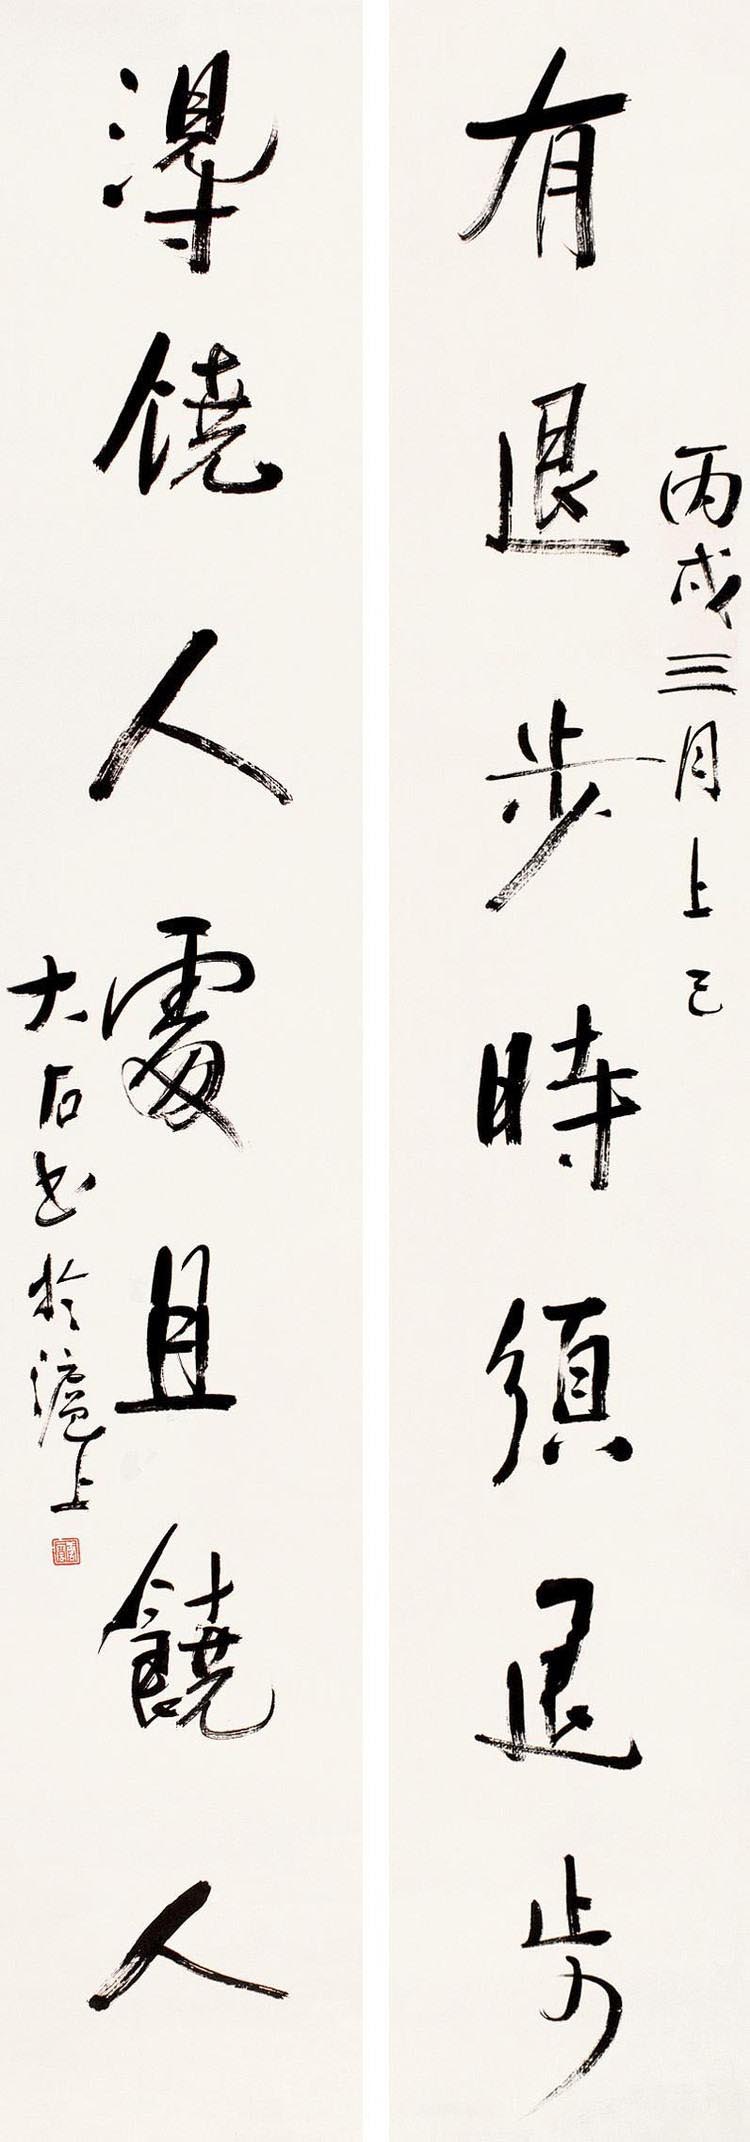 丙戌三月上巳
有退步時須退步
得饶人處且饒人
大石书於滬上